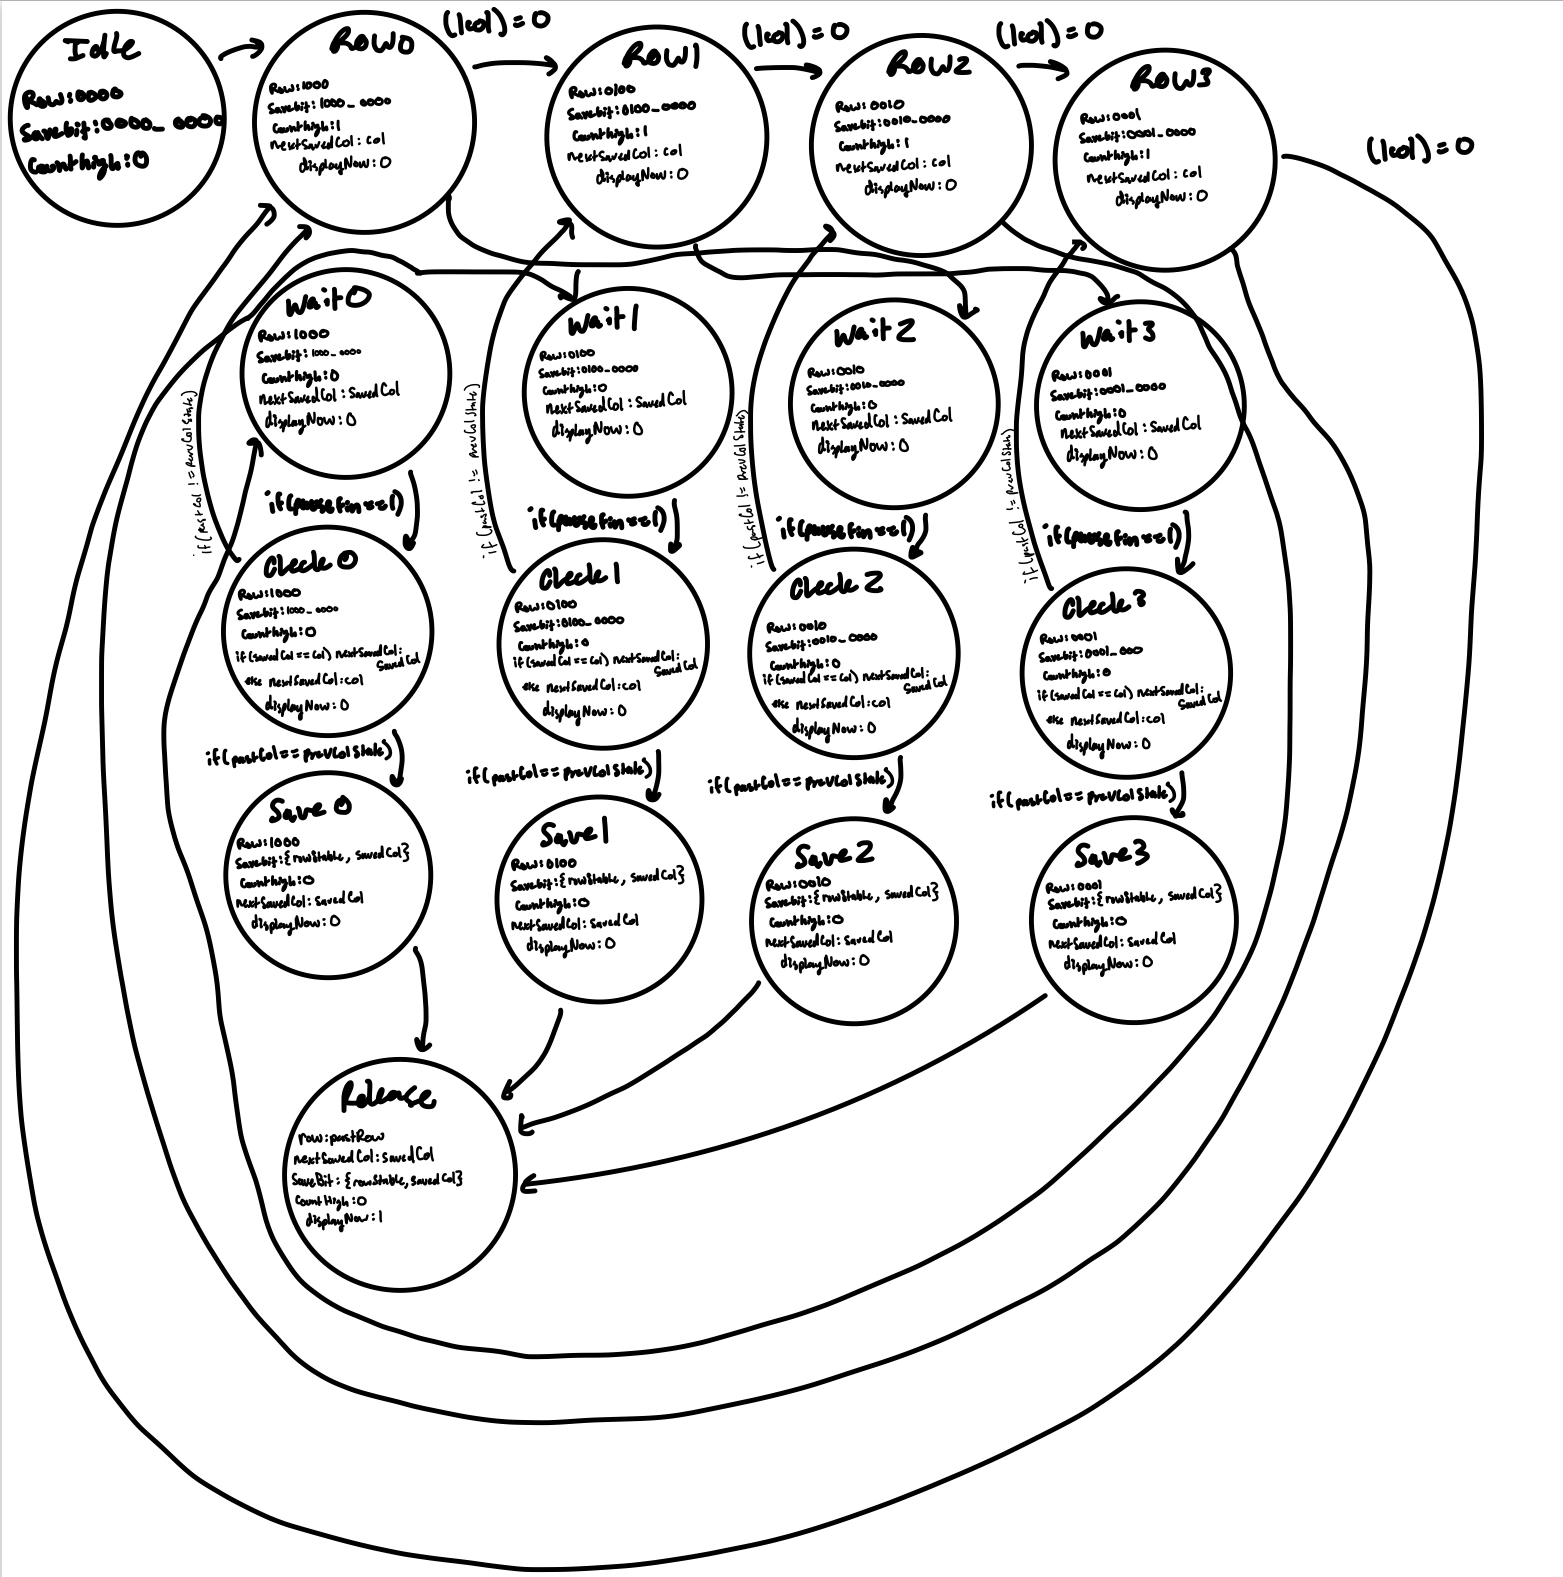 Idle
Row:0000
Savebit:0000_0000
Counthigh:0
ROW0
Row:1000
Savebit:1000_0000
Counthigh:1
nextSavedCol: col
displayNow:0
(|col)=0
ROW1
Row:0100
Savebit:0100_0000
Counthigh:1
nextSavedCol: col
displayNow:0
(|col)=0
ROW2
Row:0010
Savebit:0010_0000
Counthigh:1
nextSavedCol: col
displayNow:0
(|col)=0
ROW3
Row:0001
Savebit:0001_0000
Counthigh:1
nextSavedCol: col
displayNow:0
(|col)=0
Wait0
Row:1000
Savebit:1000_0000
Counthigh:0
nextSavedCol: SavedCol
displayNow:0
Wait1
Row:0100
Savebit:0100_0000
Counthigh:0
nextSavedCol: SavedCol
displayNow:0
Wait2
Row:0010
Savebit:0010_0000
Counthigh:0
nextSavedCol: SavedCol
displayNow:0
Wait3
Row:0001
Savebit:0001_0000
Counthigh:0
nextSavedCol: SavedCol
displayNow:0
if(pastCol != PrevColState)
if(pastCol != PrevColState)
if(pastCol != PrevColState)
if(pastCol != PrevColState)
if(pauseFin==1)
if(pauseFin==1)
if(pauseFin==1)
if(pauseFin==1)
Check0
Row:1000
Savebit:1000_0000
Counthigh:0
if(savedCol==col) nextSavedCol:
SavedCol
else nextSavedCol:col
displayNow:0
Check1
Row:0100
Savebit:0100_0000
Counthigh:0
if(savedCol==col) nextSavedCol:
SavedCol
else nextSavedCol:col
displayNow:0
Check2
Row:0010
Savebit:0010_0000
Counthigh:0
if(savedCol==col) nextSavedCol:
SavedCol
else nextSavedCol:col
displayNow:0
Check3
Row:0001
Savebit:0001_000
Counthigh:0
if(savedCol==col) nextSavedCol:
SavedCol
else nextSavedCol:col
displayNow:0
if(pastCol==prevColState)
if(pastCol==prevColState)
if(pastCol==prevColState)
if(pastCol==prevColState)
Save0
Row:1000
Savebit:{rowStable, SavedCol}
Counthigh:0
nextSavedCol: SavedCol
displayNow:0
Save1
Row:0100
Savebit:{rowStable, SavedCol}
Counthigh:0
nextSavedCol: SavedCol
displayNow:0
Save2
Row:0010
Savebit:{rowStable, SavedCol}
Counthigh:0
nextSavedCol: SavedCol
displayNow:0
Save3
Row:0001
Savebit:{rowStable, SavedCol}
Counthigh:0
nextSavedCol: SavedCol
displayNow:0
Release
row:pastRow
nextSavedCol: SavedCol
SaveBit: {rowStable, savedCol}
CountHigh:0
displayNow:1